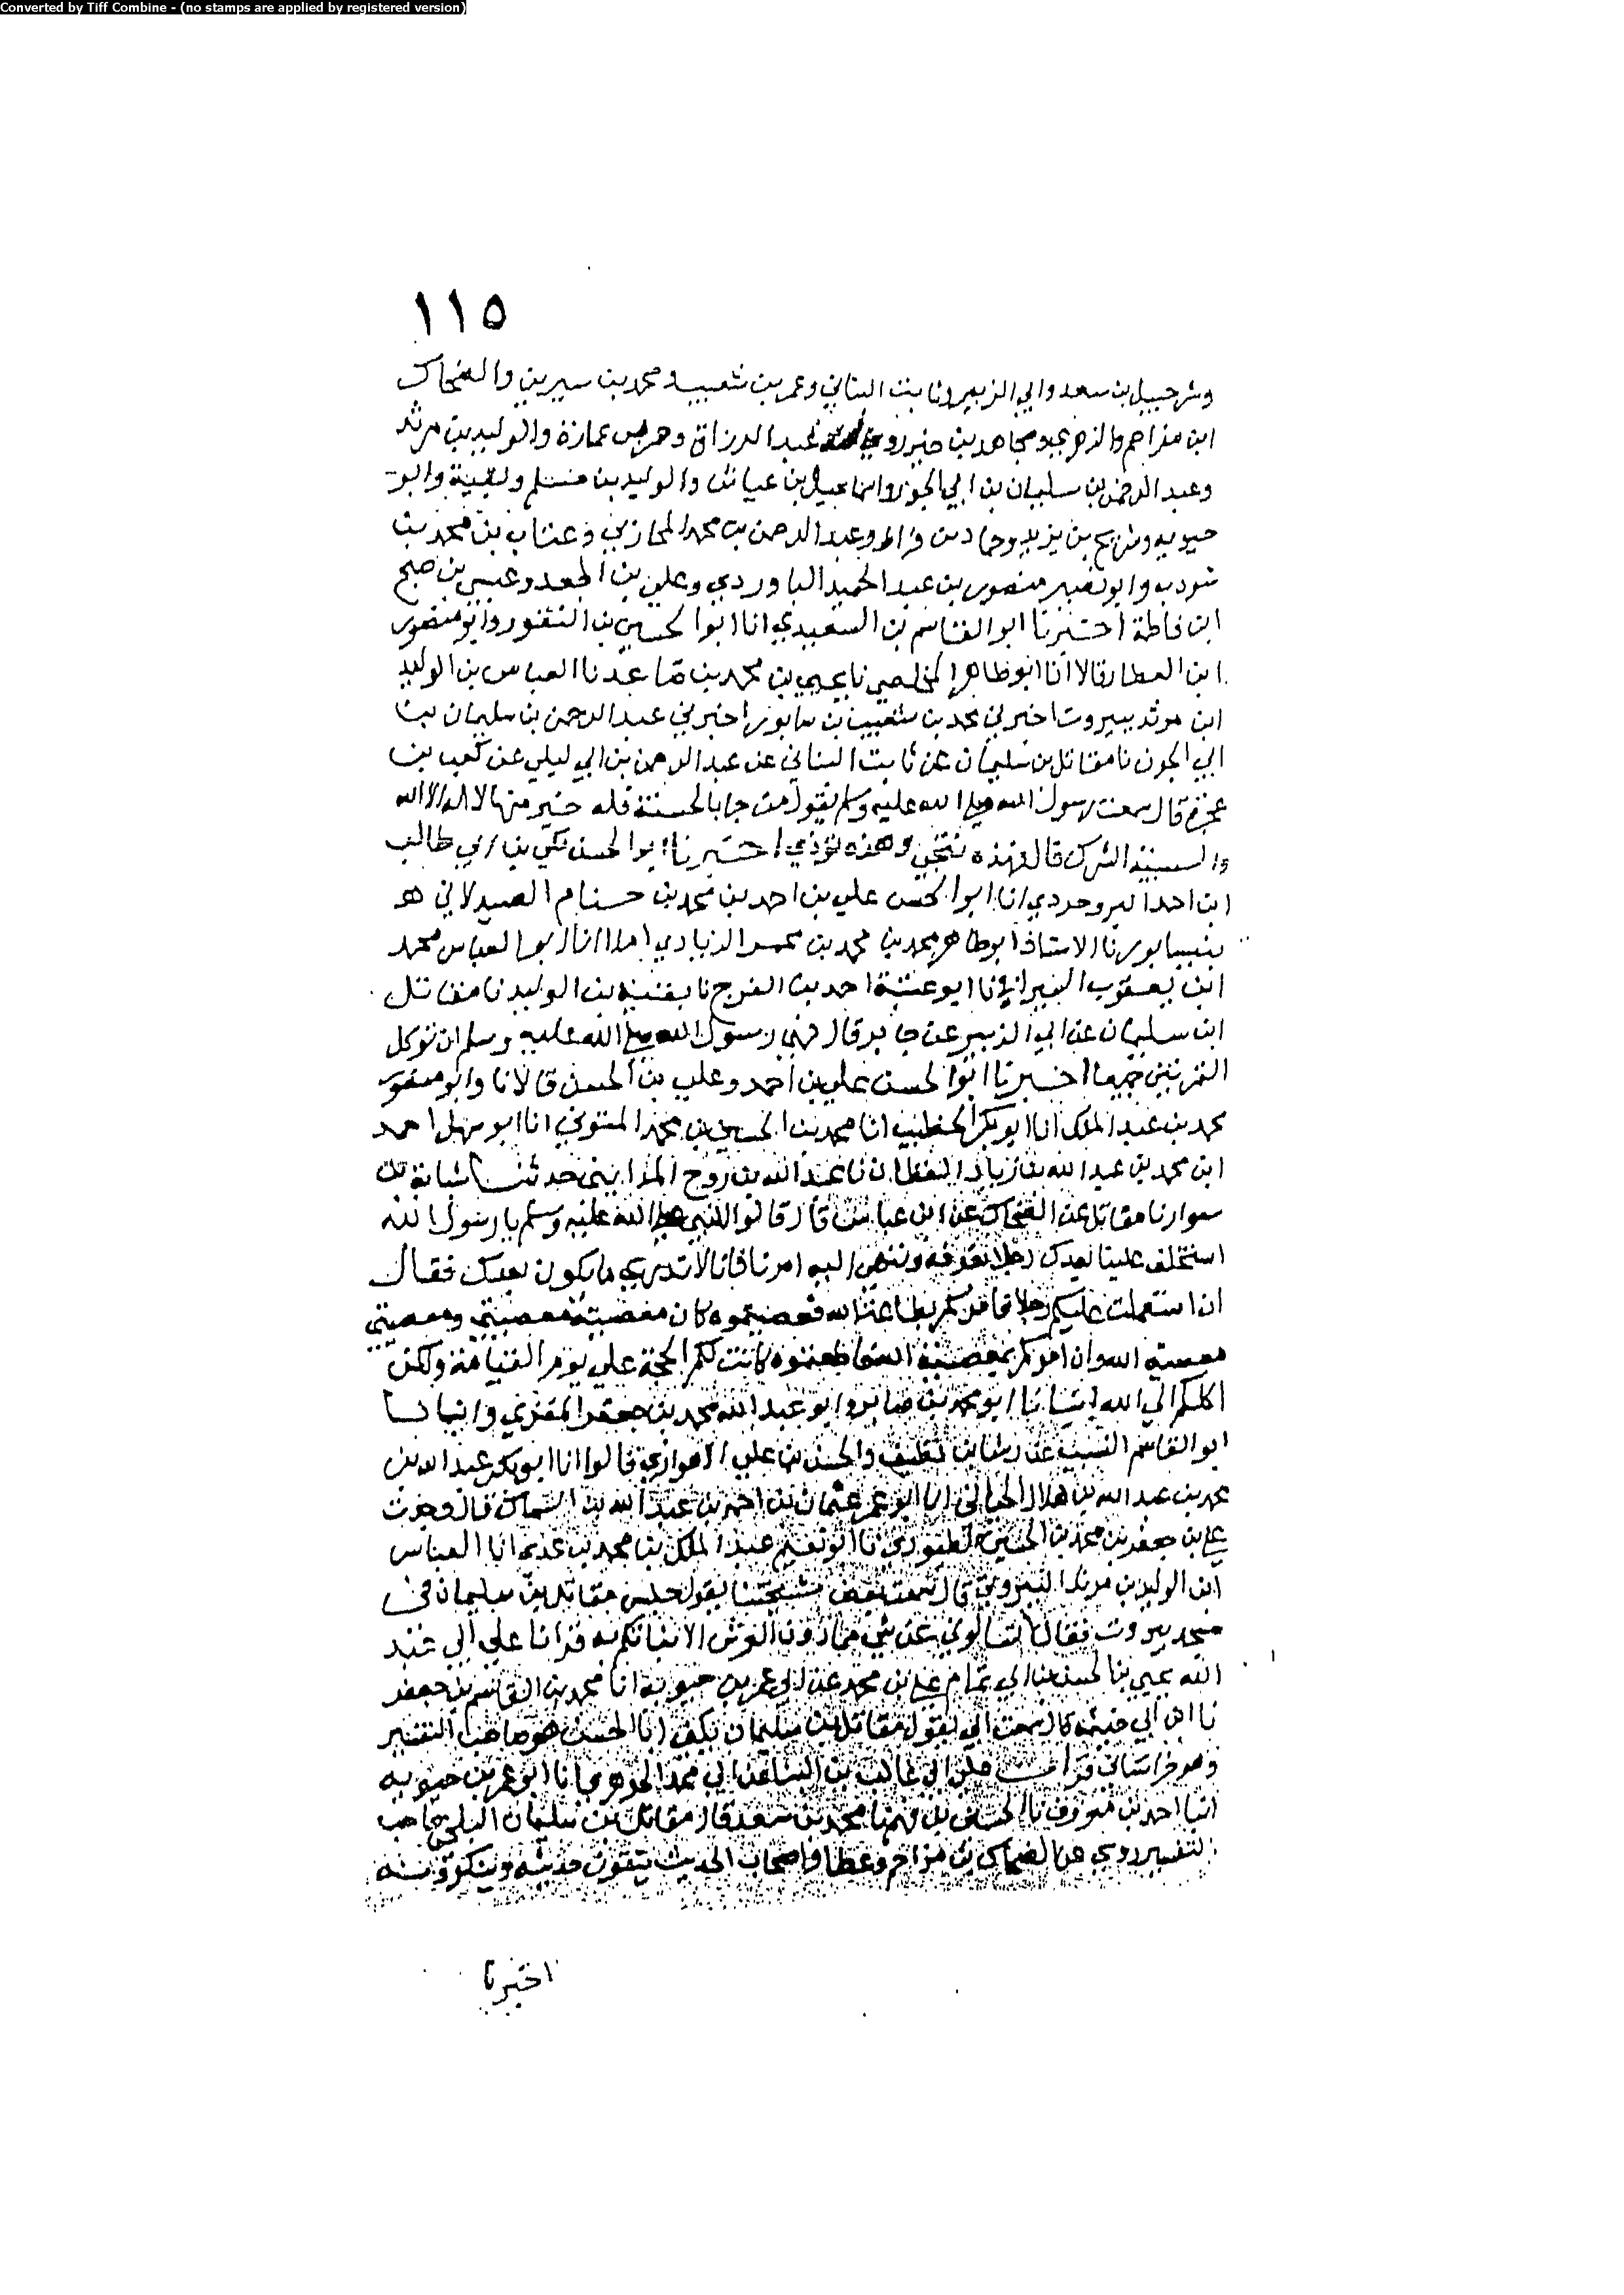 Converted by Tiff Combine - (no stamps are applied by registered version)
١١٥
وشرحبيل بن سعد وابي الزبير وثابت البناني وعمر بن شعيب ومحمد بن سيرين والضحاك
ابن مزاحم والزهري ومجاهد بن جبر روي عنه عبد الرزاق وحرمي بن عمارة والوليد بن مرثد
وعبد الرحمن بن سليمان بن ابي الجون واسماعيل بن عياش والوليد بن مسلم وبقية وابو
حيوة شريح بن يزيد وحماد بن قيراط وعبد الرحمن بن محمد المحاربي وعتاب بن محمد بن
شوذب وابو نصير منصور بن عبد الحميد الباوردي وعلي بن الجعد وعيسى بن صبح
ابن فاطمة اخبرنا ابو القاسم بن السمرقندي انا ابوا الحسين بن النقور وابو منصور
ابن العطار قالا انا ابو طاهر المخلص نا يحيى بن محمد بن صاعد نا العباس بن الوليد
ابن مرثد ببيروت اخبرني محمد بن شعيب بن سابور اخبرني عبد الرحمن بن سليمان بن
ابي الجون نا مقاتل بن سليمان عن ثابت البناني عن عبد الرحمن بن ابي ليلي عن كعب بن
عجرة قال سمعت رسول الله صلى الله عليه وسلم يقول من جا بالحسنة فله خير منها لا اله الا الله
والسيئة الشرك قال فهذه تنجي وهذه تؤذي اخبرنا ابو الحسن مكي بن ابي طالب
ابن احمد البروجردي انا ابوا الحسن علي بن احمد بن محمد بن حسنام الصيدلاني هو
بنيسابور نا الاستاذ ابو طاهر محمد بن محمد بن محمس الزيادي املا انا ابو العباس محمد
ابن يعقوب انا ابو عتبة احمد بن الفرج نا بقية بن الوليد نا مقاتل
ابن سليمان عن ابي الزبير عن جابر قال نهى رسول الله صلى الله عليه وسلم ان توكل
التمرتين جميعا اخبرنا ابوا الحسن علي بن احمد وعلي بن الحسن قالا نا وابو منصور
محمد بن عبد الملك انا ابو بكر الخطيب انا محمد بن الحسين بن محمد المتوثي انا ابو سهل احمد
ابن محمد بن عبد الله بن زياد القطان نا عبد الله بن روح المدايني حدثنا شبابة بن
سوار نا مقاتل عن الضحاك عن ابن عباس قال قالوا للنبي صلى الله عليه وسلم يا رسول الله
استخلف علينا بعدك رجلا نعرفه وننهي اليه امرنا فانا لا ندري ما يكون بعدك فقال
ان استعملت عليكم رجلا فامركم بطاعة الله فعصيتموه كان معصيته معصيتي ومعصيتي
معصية الله وان امركم بمعصية الله فاطعتموه كانت لكم الحجة علي يوم القيامة ولكن
اكلكم الي الله انبانا ابو محمد بن صابر وابو عبد الله محمد بن جعفر المقري وانبانا
ابو القاسم النسيب عن رشا بن نظيف والحسن بن علي الاهوازي قالوا انا ابو بكر عبد الله بن
محمد بن عبد الله بن هلال الحنائي انا ابو عمر عثمان بن احمد بن عبد الله بن السماك قال وجدت
علي بن جعفر بن محمد بن الحسين نا ابو نعيم عبد الملك بن محمد بن عدي انا العباس
ابن الوليد بن مرثد البيروتي قال سمعت بعض مشيختنا يقول جلس مقاتل بن سليمان في
مسجد بيروت فقال لا تسالوني عن شي مما دون العرش الا انباتكم به قرانا علي ابي عبد
الله يحيى بن الحسن عن ابي تمام علي بن محمد عن ابي عمر بن حيوية انا محمد بن القاسم بن جعفر
نا ابن ابي خيثمة قال سمعت ابي يقول مقاتل بن سليمان يكنى ابا الحسن هو صاحب التفسير
وهو خراساني قرات علي ابي غالب بن البنا عن ابي محمد الجوهري انا ابو عمر بن حيويه
انبا احمد بن معروف نا الحسين بن فهم نا محمد بن سعد قال مقاتل بن سليمان البلخي صاحب
التفسير روي عن الضحاك بن مزاحم وعطا واصحاب الحديث يتقون حديثه وينكرونه
اخبرنا